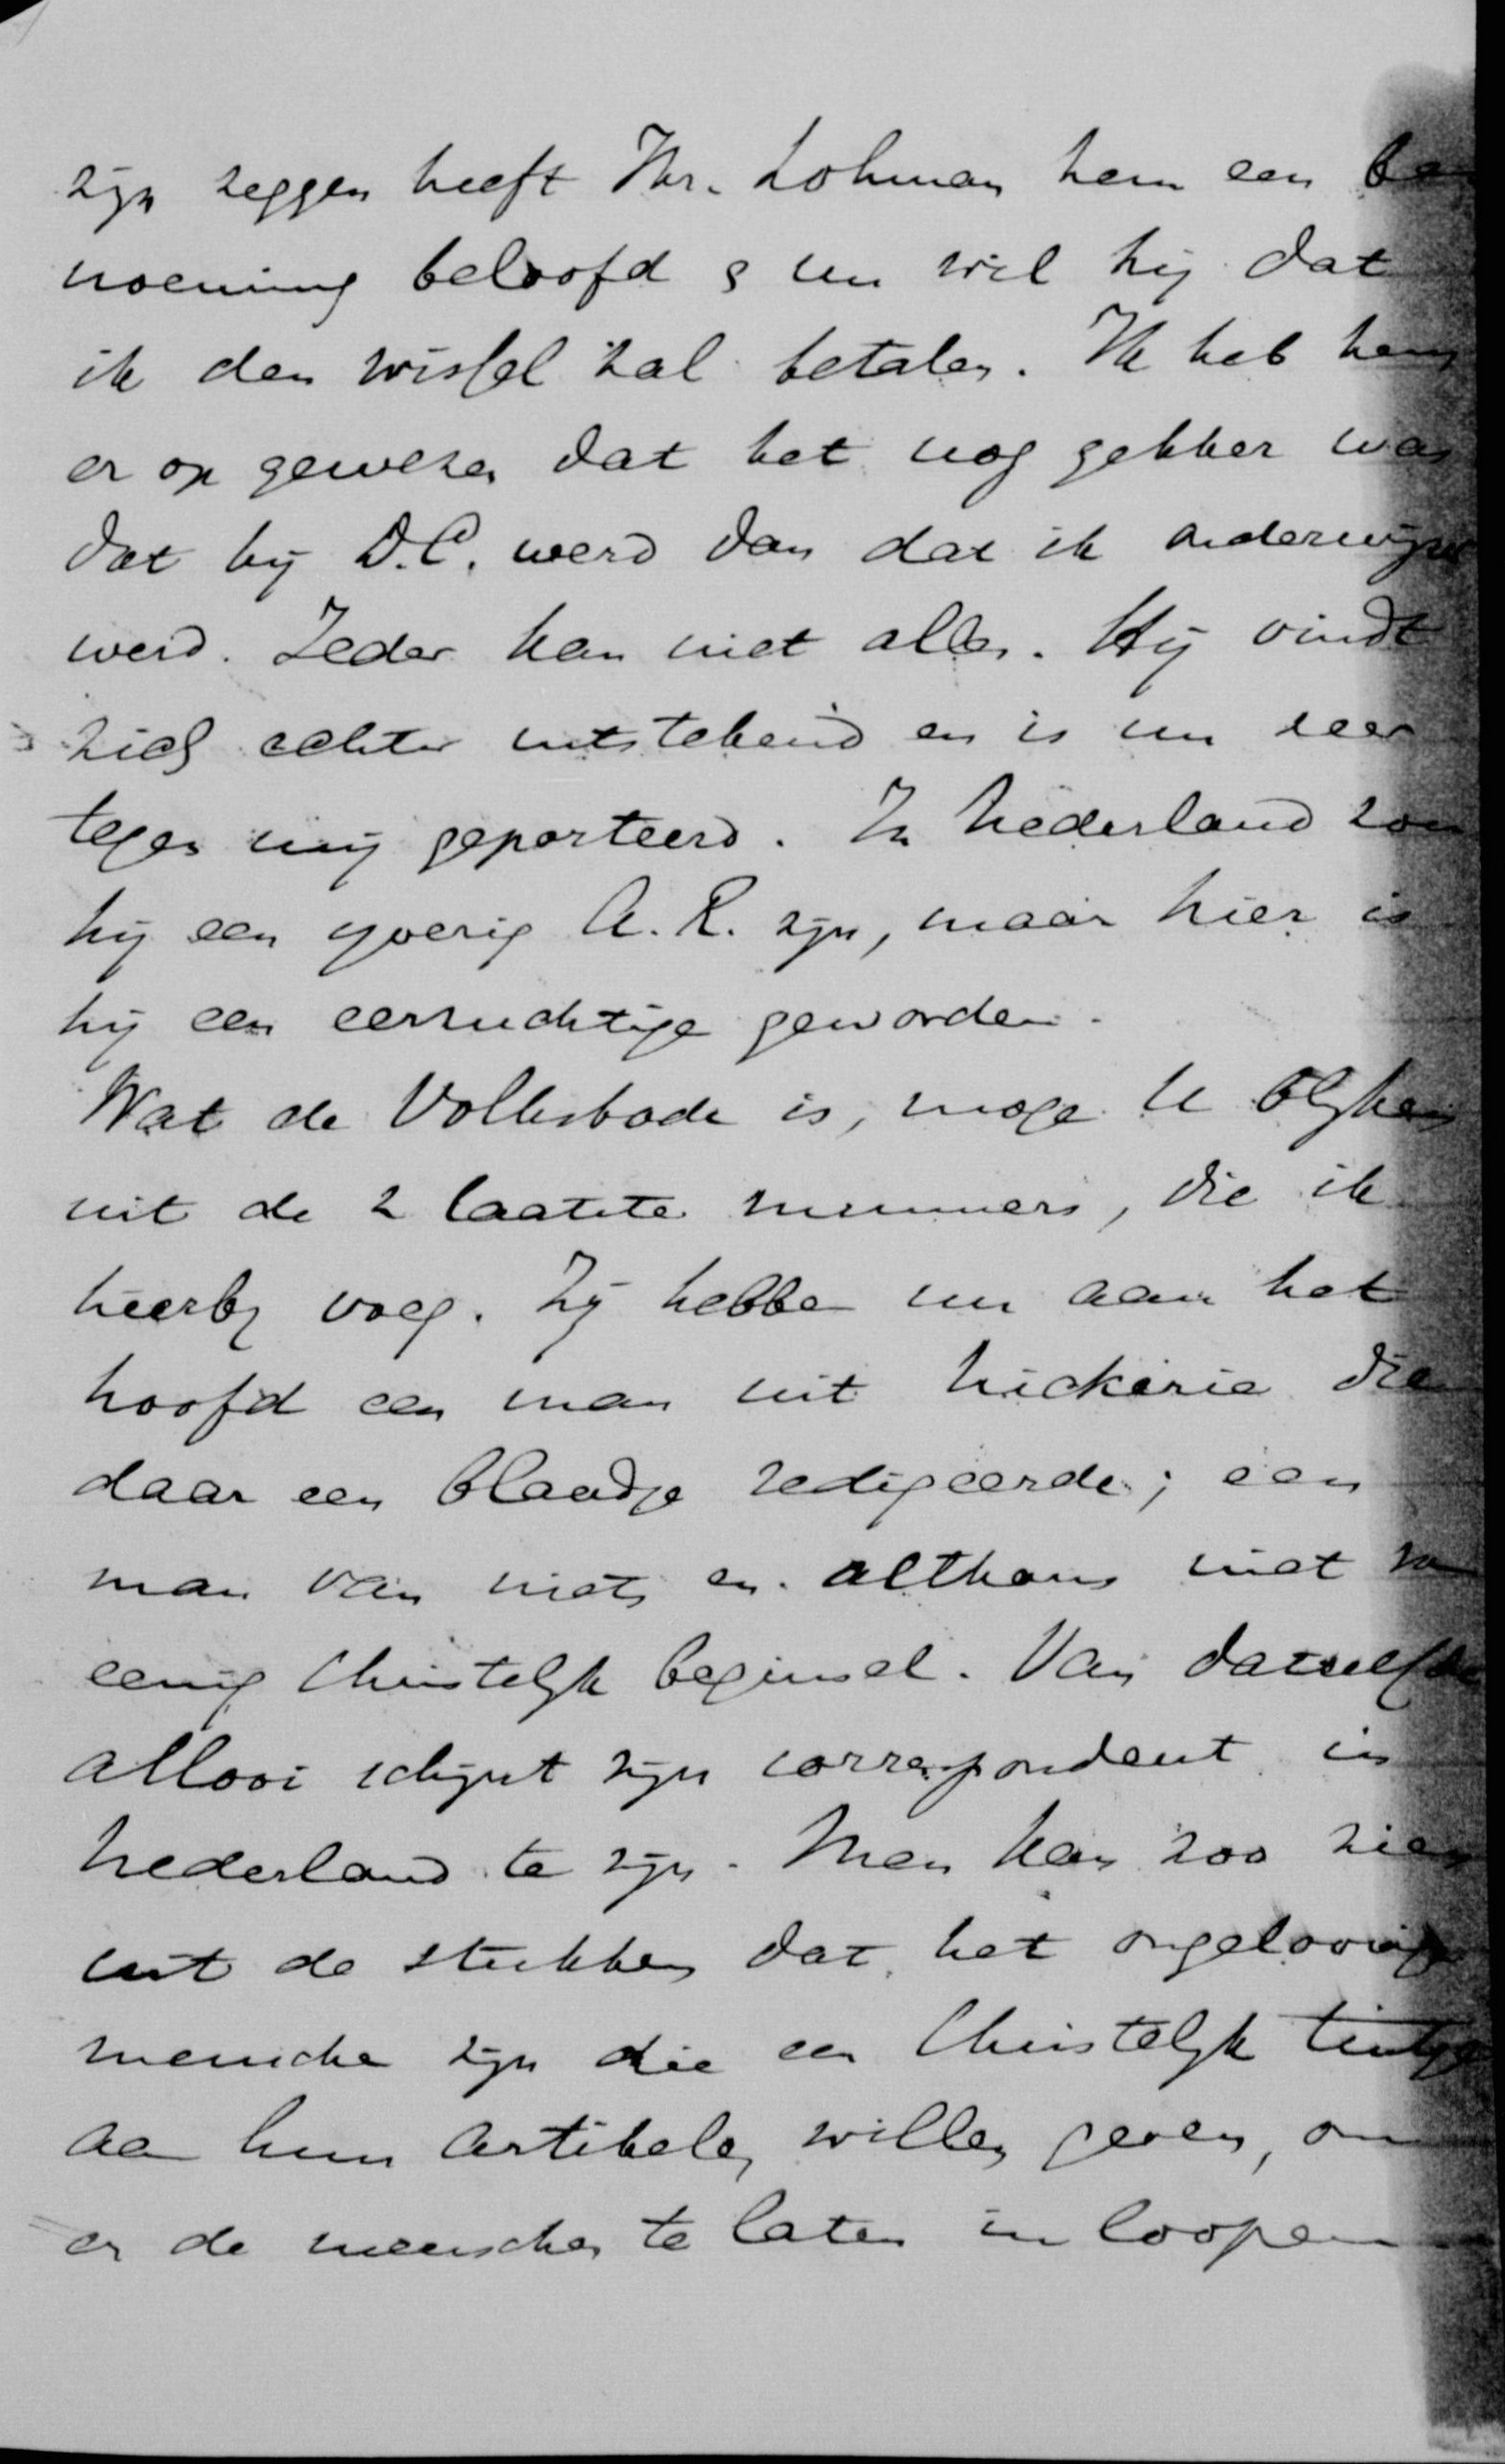 zijn zeggen heeft Mr. Lohman hem een be
noeming beloofd & nu wil hij dat
ik den wissel zal betalen. Ik heb hem
er op gewezen dat het nog gekker was
dat hij D.C. werd dan dat ik onderwijzer
werd. Ieder kan niet alles. Hij vindt
zich echter uitstekend en is nu zeer
tegen mij geporteerd. In Nederland zou
hij een ijverig A.R. zijn, maar hier is
hij een eerzuchtige geworden.
Wat de Volksbode is, moge U blijken
uit de 2 laatste nummers, die ik
hierbij voeg. Zij hebben nu aan het
hoofd een man uit Nickerie die
daar een blaadje redigeerde; een
man van niets en althans niet van
eenig Christelijk beginsel. Van datzelfde
allooi schijnt zijn correspondent in
Nederland te zijn. Men kan zoo zien
uit de stukken dat het ongeloovige
menschen zijn die een Christelijk tintje
aan hun artikelen willen geven, om
er de menschen te laten in loopen